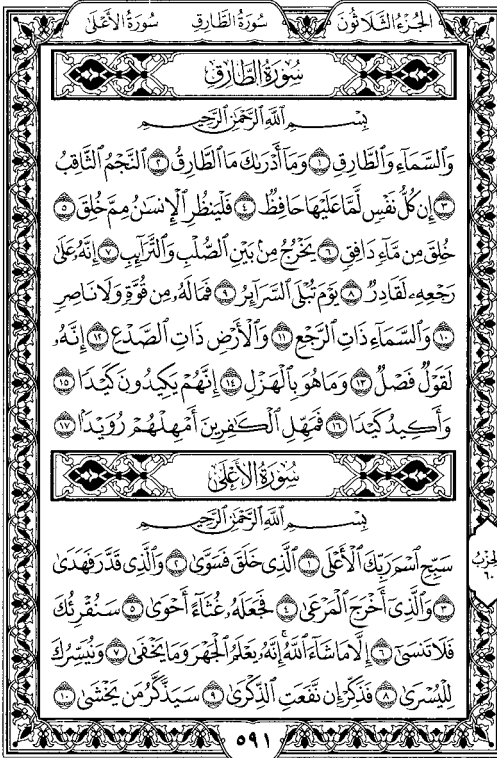 الجزء الثلاثون سورة الطارق سورة الأعلى
سُورَةُ الطَّارِقِ
بِسْمِ ٱللَّهِ ٱلرَّحْمَٰنِ ٱلرَّحِيمِ
وَٱلسَّمَآءِ وَٱلطَّارِقِ ١ وَمَآ أَدْرَىٰكَ مَا ٱلطَّارِقُ ٢ ٱلنَّجْمُ ٱلثَّاقِبُ
٣ إِن كُلُّ نَفْسٍ لَّمَّا عَلَيْهَا حَافِظٌ ٤ فَلْيَنظُرِ ٱلْإِنسَٰنُ مِمَّ خُلِقَ ٥
خُلِقَ مِن مَّآءٍ دَافِقٍ ٦ يَخْرُجُ مِنۢ بَيْنِ ٱلصُّلْبِ وَٱلتَّرَآئِبِ ٧ إِنَّهُۥ عَلَىٰ
رَجْعِهِۦ لَقَادِرٌ ٨ يَوْمَ تُبْلَى ٱلسَّرَآئِرُ ٩ فَمَا لَهُۥ مِن قُوَّةٍ وَلَا نَاصِرٍ
١٠ وَٱلسَّمَآءِ ذَاتِ ٱلرَّجْعِ ١١ وَٱلْأَرْضِ ذَاتِ ٱلصَّدْعِ ١٢ إِنَّهُۥ
لَقَوْلٌ فَصْلٌ ١٣ وَمَا هُوَ بِٱلْهَزْلِ ١٤ إِنَّهُمْ يَكِيدُونَ كَيْدًا ١٥
وَأَكِيدُ كَيْدًا ١٦ فَمَهِّلِ ٱلْكَٰفِرِينَ أَمْهِلْهُمْ رُوَيْدًۢا ١٧
سُورَةُ الأَعْلَىٰ
بِسْمِ ٱللَّهِ ٱلرَّحْمَٰنِ ٱلرَّحِيمِ
سَبِّحِ ٱسْمَ رَبِّكَ ٱلْأَعْلَى ١ ٱلَّذِى خَلَقَ فَسَوَّىٰ ٢ وَٱلَّذِى قَدَّرَ فَهَدَىٰ
٣ وَٱلَّذِىٓ أَخْرَجَ ٱلْمَرْعَىٰ ٤ فَجَعَلَهُۥ غُثَآءً أَحْوَىٰ ٥ سَنُقْرِئُكَ
فَلَا تَنسَىٰٓ ٦ إِلَّا مَا شَآءَ ٱللَّهُ ۚ إِنَّهُۥ يَعْلَمُ ٱلْجَهْرَ وَمَا يَخْفَىٰ ٧ وَنُيَسِّرُكَ
لِلْيُسْرَىٰ ٨ فَذَكِّرْ إِن نَّفَعَتِ ٱلذِّكْرَىٰ ٩ سَيَذَّكَّرُ مَن يَخْشَىٰ ١٠
الحزب
٦٠
٥٩١